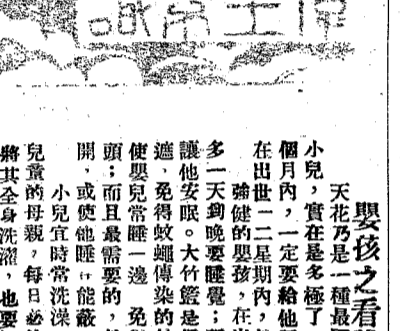 衛生常識
嬰孩之看
天花乃是一種最
小兒，實在是多極了
個月內，一定要給他
在出世一二星期內，
強健的嬰孩，在
多一天到晚要睡覺；
讓他安眠。大竹籃是
遮，免得蚊蠅傳染的
使嬰兒常睡一邊，免
頭；而且最需要的，
開，或使他睡能蔽
小兒宜時常洗澡
兒童的母親，每日必
將其全身洗濯，也要